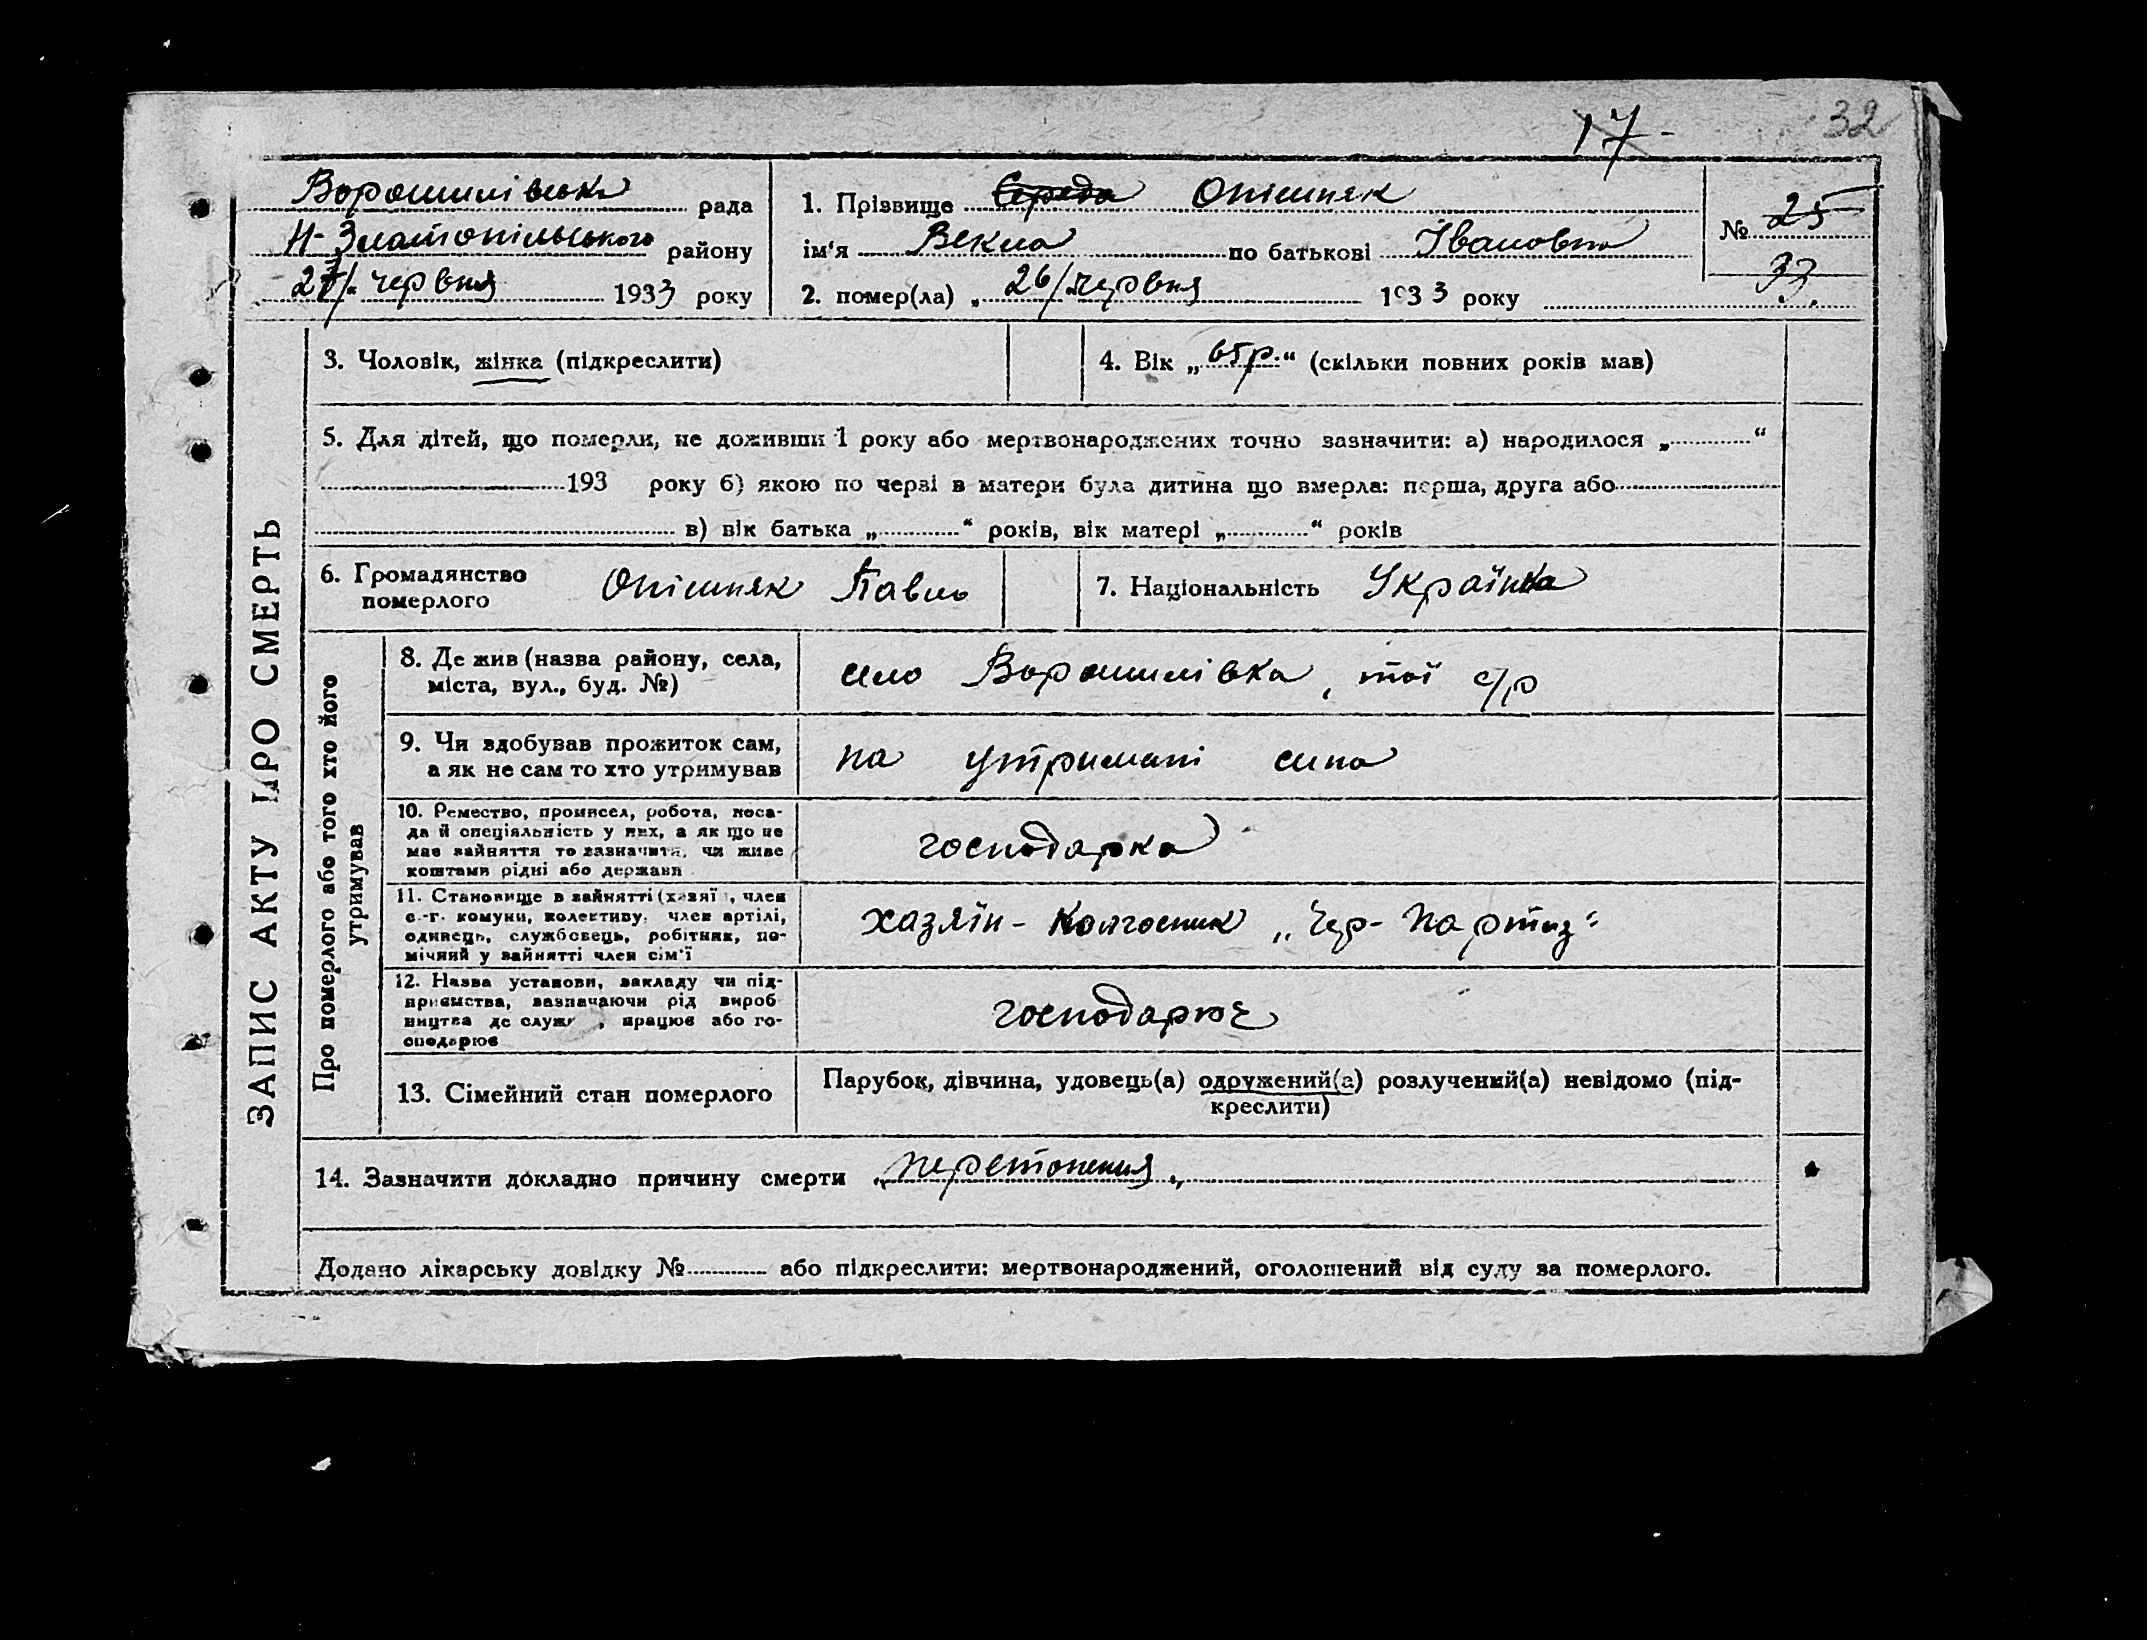 17 -
32
Ворошилівська рада
Н-Златопільського району
27/. червня 1933 року
1. Прізвище Середа Опішняк
ім‘я Векла по батькові Івановна
2. помер(ла) „ 26/червня 1933 року
№ 25
33.
ЗАПИС АКТУ ПРО СМЕРТЬ
3. Чоловік, жінка (підкреслити)
4. Вік „ 65р. “ (скільки повних років мав)
5. Для дітей, що померли, не доживши 1 року або мертвонароджених точно зазначити: а) народилося „ “
193 року б) якою по черзі в матери була дитина що вмерла: перша, друга або
в) вік батька „ “ років, вік матері „ “ років
6. Громадянство
померлого
Опішняк Павло
7. Національність Українка
Про померлого або того хто його
утримував
8. Де жив (назва району, села,
міста, вул., буд. №)
село Ворошилівка, тої с/р
9. Чи здобував прожиток сам,
а як не сам то хто утримував
на утримані сина
10. Ремество, промисел, робота, поса-
да й спеціяльність у них, а як що не
має зайняття то зазначити, чи живе
коштами рідні або держави
господарка
11. Становище в зайнятті (хазяїн, член
с.-г. комуни, колективу, член артілі,
одинець, службовець, робітник, по-
мічний у зайнятті член сім‘ї
хазяїн - колгоспник „Чер- Партиз“
12. Назва установи, закладу чи під-
приємства, зазначаючи рід вироб
ництва де служ , працює або го-
сподарює
господарює
13. Сімейний стан померлого
Парубок, дівчина, удовець(а) одружений(а) розлучений(а) невідомо (під-
креслити)
14. Зазначити докладно причину смерти
Додано лікарську довідку № або підкреслити: мертвонароджений, оголошений від суду за померлого.